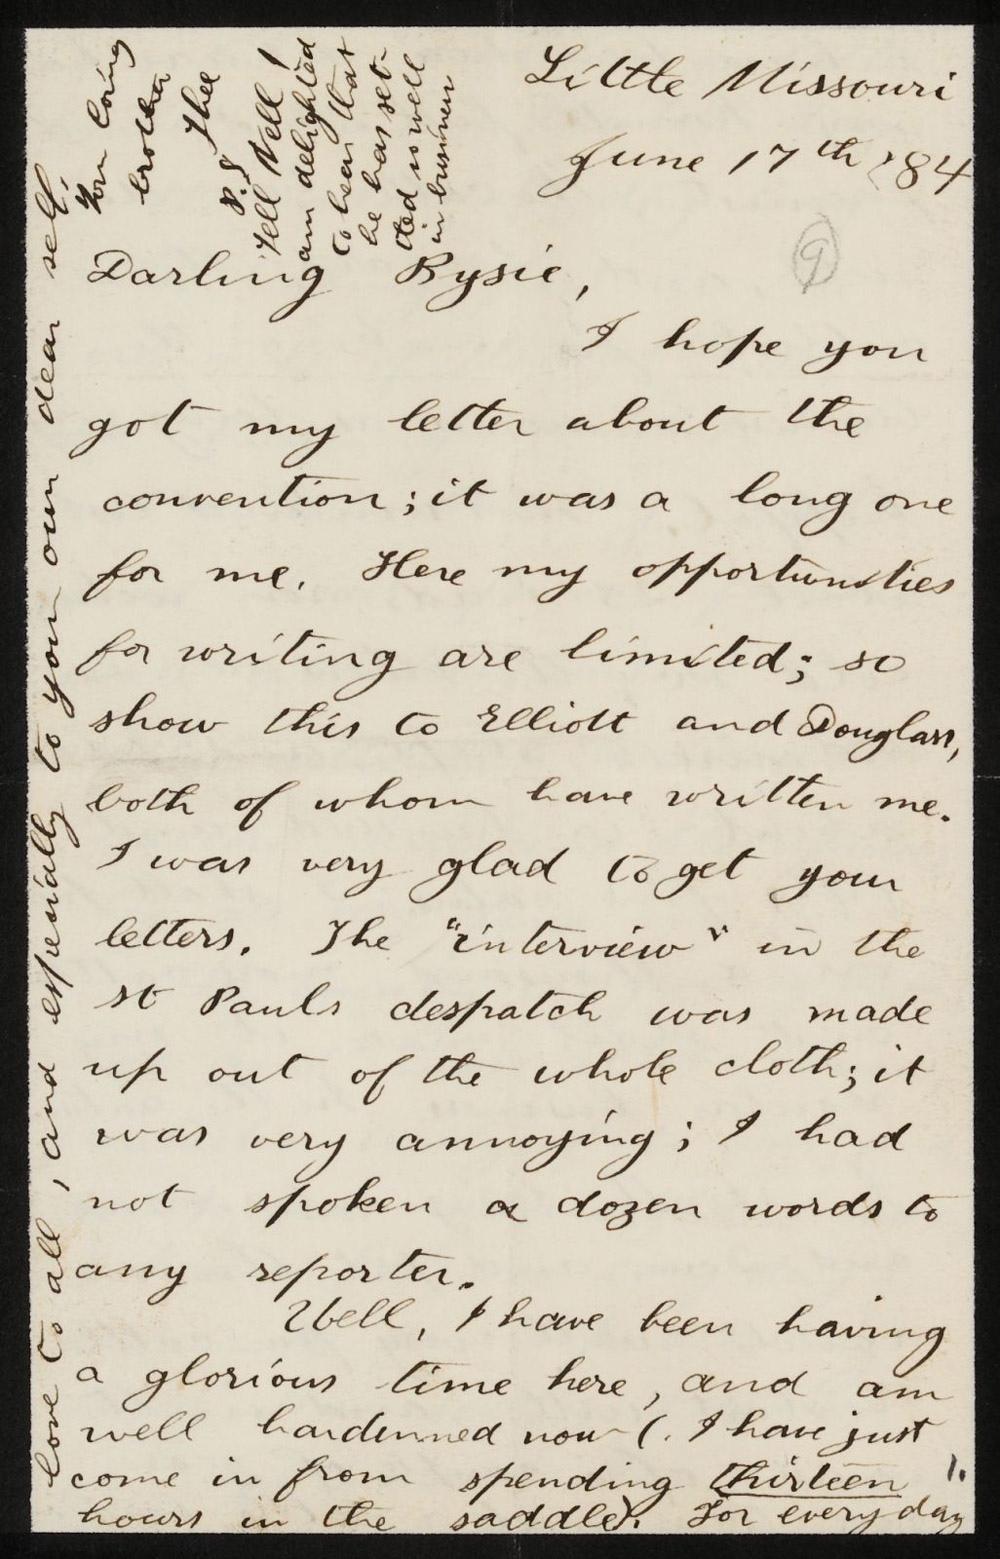 Little Missouri
June 17th 1884
⑨
Darling Bysie,
I hope you
got my letter about the
convention; it was a long one
for me. Here my opportunities
for writing are limited; so
show this to Elliott and Douglass,
both of whom have written me.
I was very glad to get your
letters. The "interview" in the
St Pauls despatch was made
up out of the whole cloth; it
was very annoying; I had
not spoken a dozen words to
any reporter.
Well, I have been having
a glorious time here, and am
well hardenned now (. I have just
come in from spending thirteen
hours in the saddle). For every day
1.
love to all, and especially to your own dear self.
Your loving
brother
Thee
P.S
Tell Nell I
am delighted
to hear that
he has set-
tled so well
in business